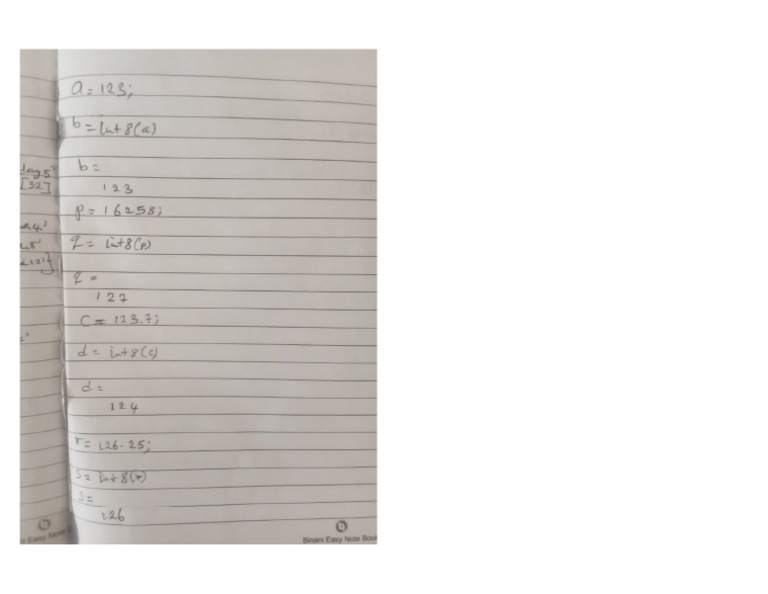 a = 123;
b = int8(a)
b =
123
p = 16258;
q = int8(p)
q =
127
c = 123.7;
d = int8(c)
d =
124
r = 126.25;
s = int8(r)
s =
126
[32]
Binani Easy Note Book